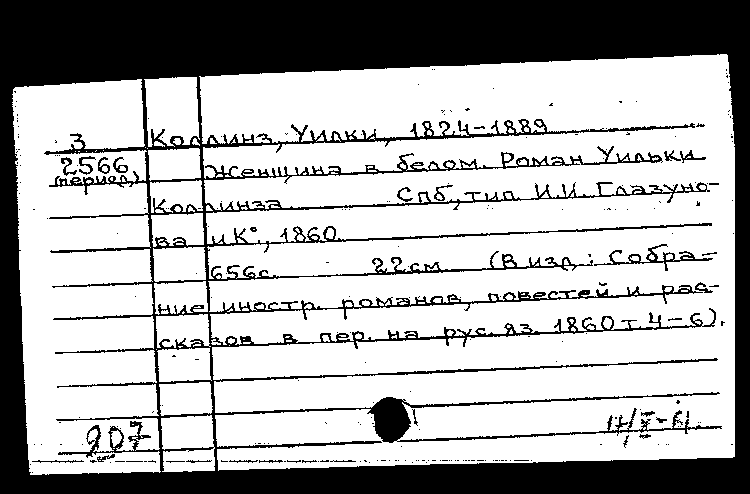 З Коллинз, Уилки, 1824-1889
2566 Женщина в белом. Роман Уильки
(период.) Коллинза Спб., тип. И.И. Глазуно-
ва и К°., 1860.
656с. 22см (В изд.: Собра=
ние иностр. романов, повестей и рас-
сказов в пер. на рус. яз. 1860 т. 4-6).
907